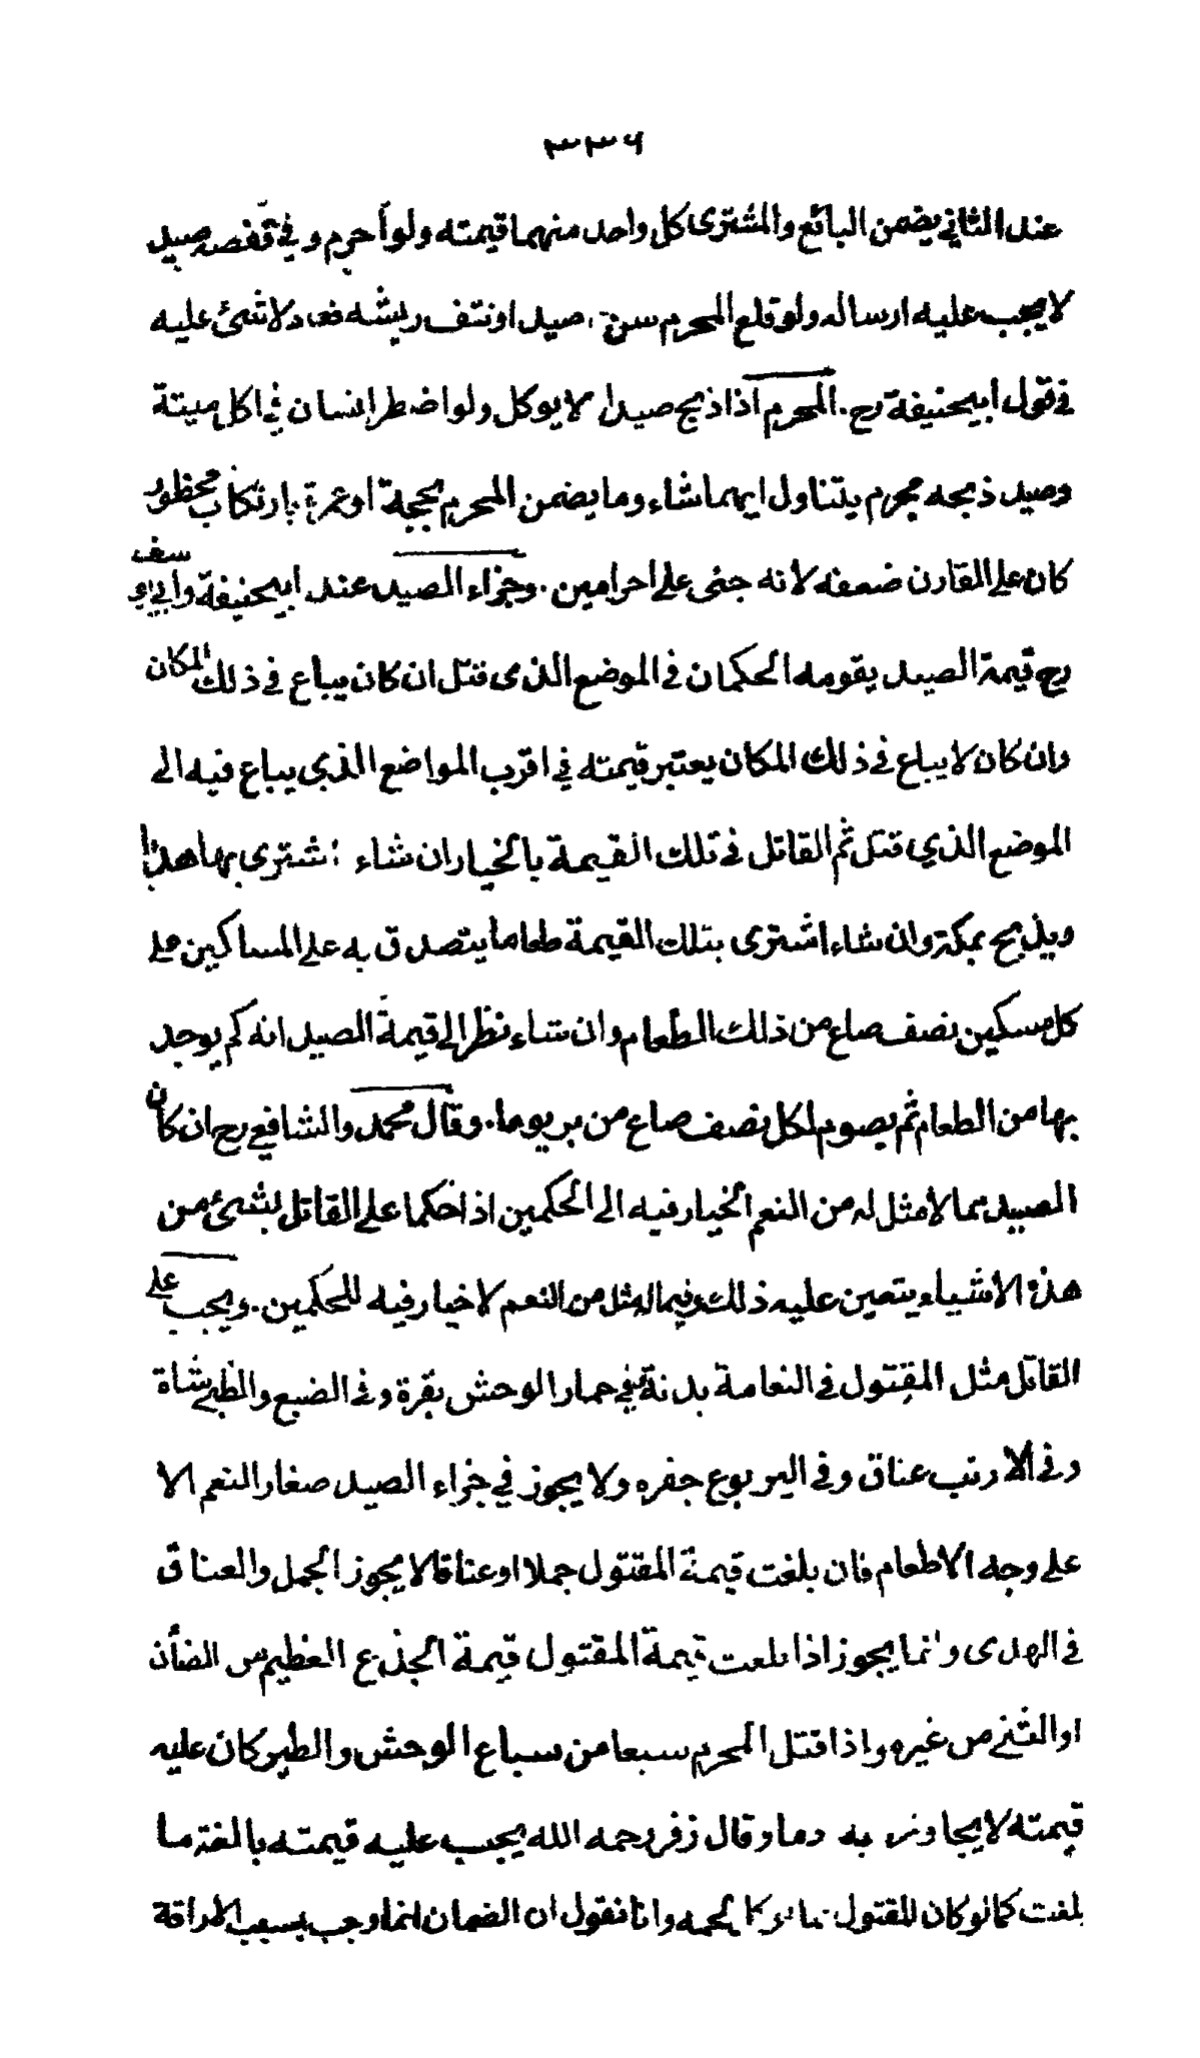 ٣٣٦
عند الثاني يضمن البائع والمشترى كل واحد منهما قيمته ولو احرم و في قفصه صيد
لا يجب عليه ارساله ولو قلع المحرم سن صيد او نتف ريشه فعاد لا شئ عليه
في قول ابيحنيفة رح. المحرم اذا ذبح صيدا لا يوكل ولو اضطر انسان في اكل ميتة
وصيد ذبحه محرم يتناول ايهما شاء وما يضمن المحرم بحجة او عمرة بارتكاب محظور
كان على القارن ضعفه لانه جنى على احرامين. وجزاء الصيد عند ابيحنيفة وابي يوسف
رح قيمة الصيد يقومه الحكمان في الموضع الذى قتل ان كان يباع في ذلك المكان
وان كان لا يباع في ذلك المكان يعتبر قيمته في اقرب المواضع الذي يباع فيه الى
الموضع الذي قتل ثم القاتل في تلك القيمة بالخيار ان شاء اشترى بها هديا
ويذبح بمكة وان شاء اشترى بتلك القيمة طعاما يتصدق به على المساكين على
كل مسكين نصف صاع من ذلك الطعام وان شاء نظر الى قيمة الصيد انه كم يوجد
بها من الطعام ثم يصوم لكل نصف صاع من بر يوما. وقال محمد والشافعي رح ان كان
الصيد مما لا مثل له من النعم الخيار فيه الى الحكمين اذا حكما على القاتل بشئ من
هذه الاشياء يتعين عليه ذلك وفيما له مثل من النعم لا خيار فيه للحكمين. ويجب على
القاتل مثل المقتول في النعامة بدنة وفي حمار الوحش بقرة وفى الضبع والظبي شاة
وفى الارنب عناق وفى اليربوع جفره ولا يجوز في جزاء الصيد صغار النعم الا
على وجه الاطعام فان بلغت قيمة المقتول جملا او عناقا لا يجوز الجمل والعناق
في الهدى وانما يجوز اذا بلغت قيمة المقتول قيمة الجذع العظيم من الضأن
او الثني من غيره واذا قتل المحرم سبعا من سباع الوحش والطير كان عليه
قيمته لا يجاوز به دما وقال زفر رحمه الله يجب عليه قيمته بالغة ما
بلغت كما لو كان للمقتول لحمه وانا نقول ان الضمان انما وجب بسبب الاراقة